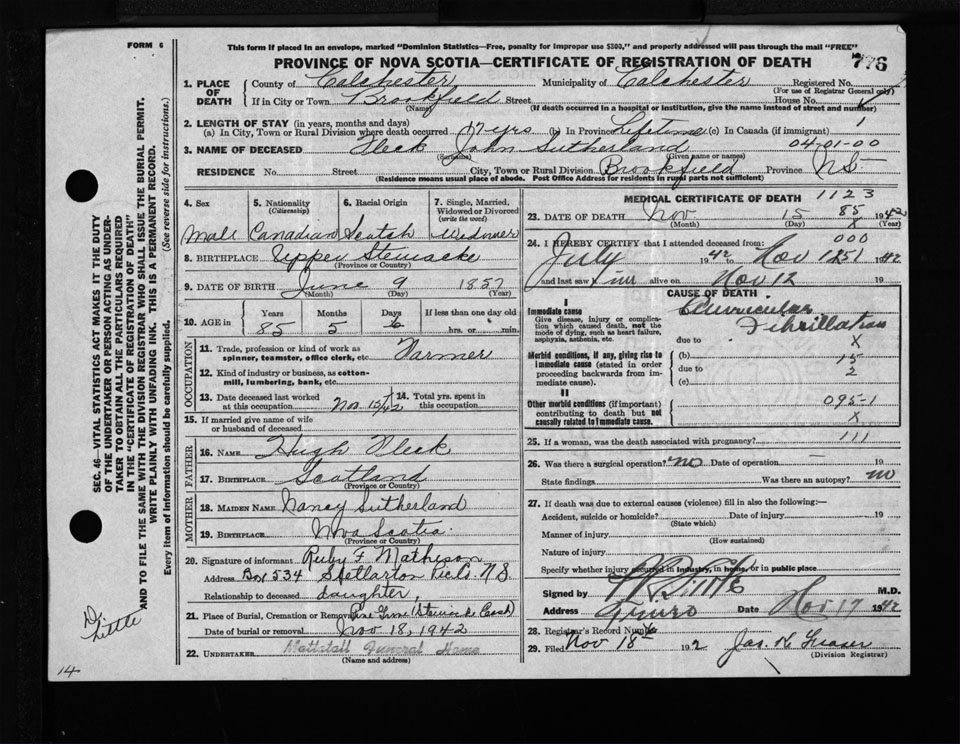 FORM 6
This form if placed in an envelope, marked "Dominion Statistics—Free, penalty for improper use $300," and properly addressed will pass through the mail "FREE"
PROVINCE OF NOVA SCOTIA—CERTIFICATE OF REGISTRATION OF DEATH
776
1. PLACE OF DEATH
County of Colchester Municipality of Colchester Registered No.
(For use of Registrar General only)
If in City or Town Brookfield Street House No.
(Name) (If death occurred in a hospital or institution, give the name instead of street and number)
2. LENGTH OF STAY (in years, months and days)
(a) In City, Town or Rural Division where death occurred 17 yrs (b) In Province Lifetime (c) In Canada (if immigrant)
3. NAME OF DECEASED Fleck John Sutherland 04-01-00
(Surname) (Given name or names)
RESIDENCE No. Street City, Town or Rural Division Brookfield Province NS
(Residence means usual place of abode. Post Office Address for residents in rural parts not sufficient)
4. Sex
Male
5. Nationality (Citizenship)
Canadian
6. Racial Origin
Scotch
7. Single, Married, Widowed or Divorced (write the word)
Widower
8. BIRTHPLACE Upper Stewiacke
(Province or Country)
9. DATE OF BIRTH June 9 1857
(Month) (Day) (Year)
10. AGE in
Years Months Days If less than one day old
85 5 6 hrs. or min.
OCCUPATION
11. Trade, profession or kind of work as spinner, teamster, office clerk, etc. Farmer
12. Kind of industry or business, as cotton-mill, lumbering, bank, etc.
13. Date deceased last worked at this occupation Nov 15/42
14. Total yrs. spent in this occupation
15. If married give name of wife or husband of deceased
FATHER
16. NAME Hugh Fleck
17. BIRTHPLACE Scotland
(Province or Country)
MOTHER
18. MAIDEN NAME Nancy Sutherland
19. BIRTHPLACE Nova Scotia
(Province or Country)
20. Signature of informant Ruby F Matheson
Address Box 534 Stellarton Pic Co. N.S.
Relationship to deceased daughter
21. Place of Burial, Cremation or Removal Pine Grove (Stewiacke East)
Date of burial or removal Nov 18, 1942
22. UNDERTAKER Mattatall Funeral Home
(Name and address)
MEDICAL CERTIFICATE OF DEATH 1123
23. DATE OF DEATH Nov 15 85 1942
(Month) (Day) X (Year)
24. I HEREBY CERTIFY that I attended deceased from: 000
July 1942 to Nov 1942
and last saw him alive on Nov 12 19
CAUSE OF DEATH
I
Immediate cause
Give disease, injury or complication which caused death, not the mode of dying, such as heart failure, asphyxia, asthenia, etc.
Auricular
Fibrillation
due to X
Morbid conditions, if any, giving rise to immediate cause (stated in order proceeding backwards from immediate cause).
(b) 15
due to 2
(c)
II
Other morbid conditions (if important) contributing to death but not causally related to immediate cause.
095-1
X
25. If a woman, was the death associated with pregnancy? 111
26. Was there a surgical operation? no Date of operation 19
State findings Was there an autopsy? no
27. If death was due to external causes (violence) fill in also the following:—
Accident, suicide or homicide? Date of injury 19
(State which)
Manner of injury
(How sustained)
Nature of injury
Specify whether injury occurred in industry, in home, or in public place
Signed by M.D.
Address Truro Date Nov 17 1942
28. Registrar's Record Number
29. Filed Nov 18th 1942 Jas. H. Fraser
(Division Registrar)
SEC. 46—VITAL STATISTICS ACT MAKES IT THE DUTY OF THE UNDERTAKER OR PERSON ACTING AS UNDERTAKER TO OBTAIN ALL THE PARTICULARS REQUIRED IN THE "CERTIFICATE OF REGISTRATION OF DEATH" AND TO FILE THE SAME WITH THE DIVISION REGISTRAR WHO SHALL ISSUE THE BURIAL PERMIT.
WRITE PLAINLY WITH UNFADING INK. THIS IS A PERMANENT RECORD.
Every item of information should be carefully supplied. (See reverse side for instructions.)
Dr. Little
14